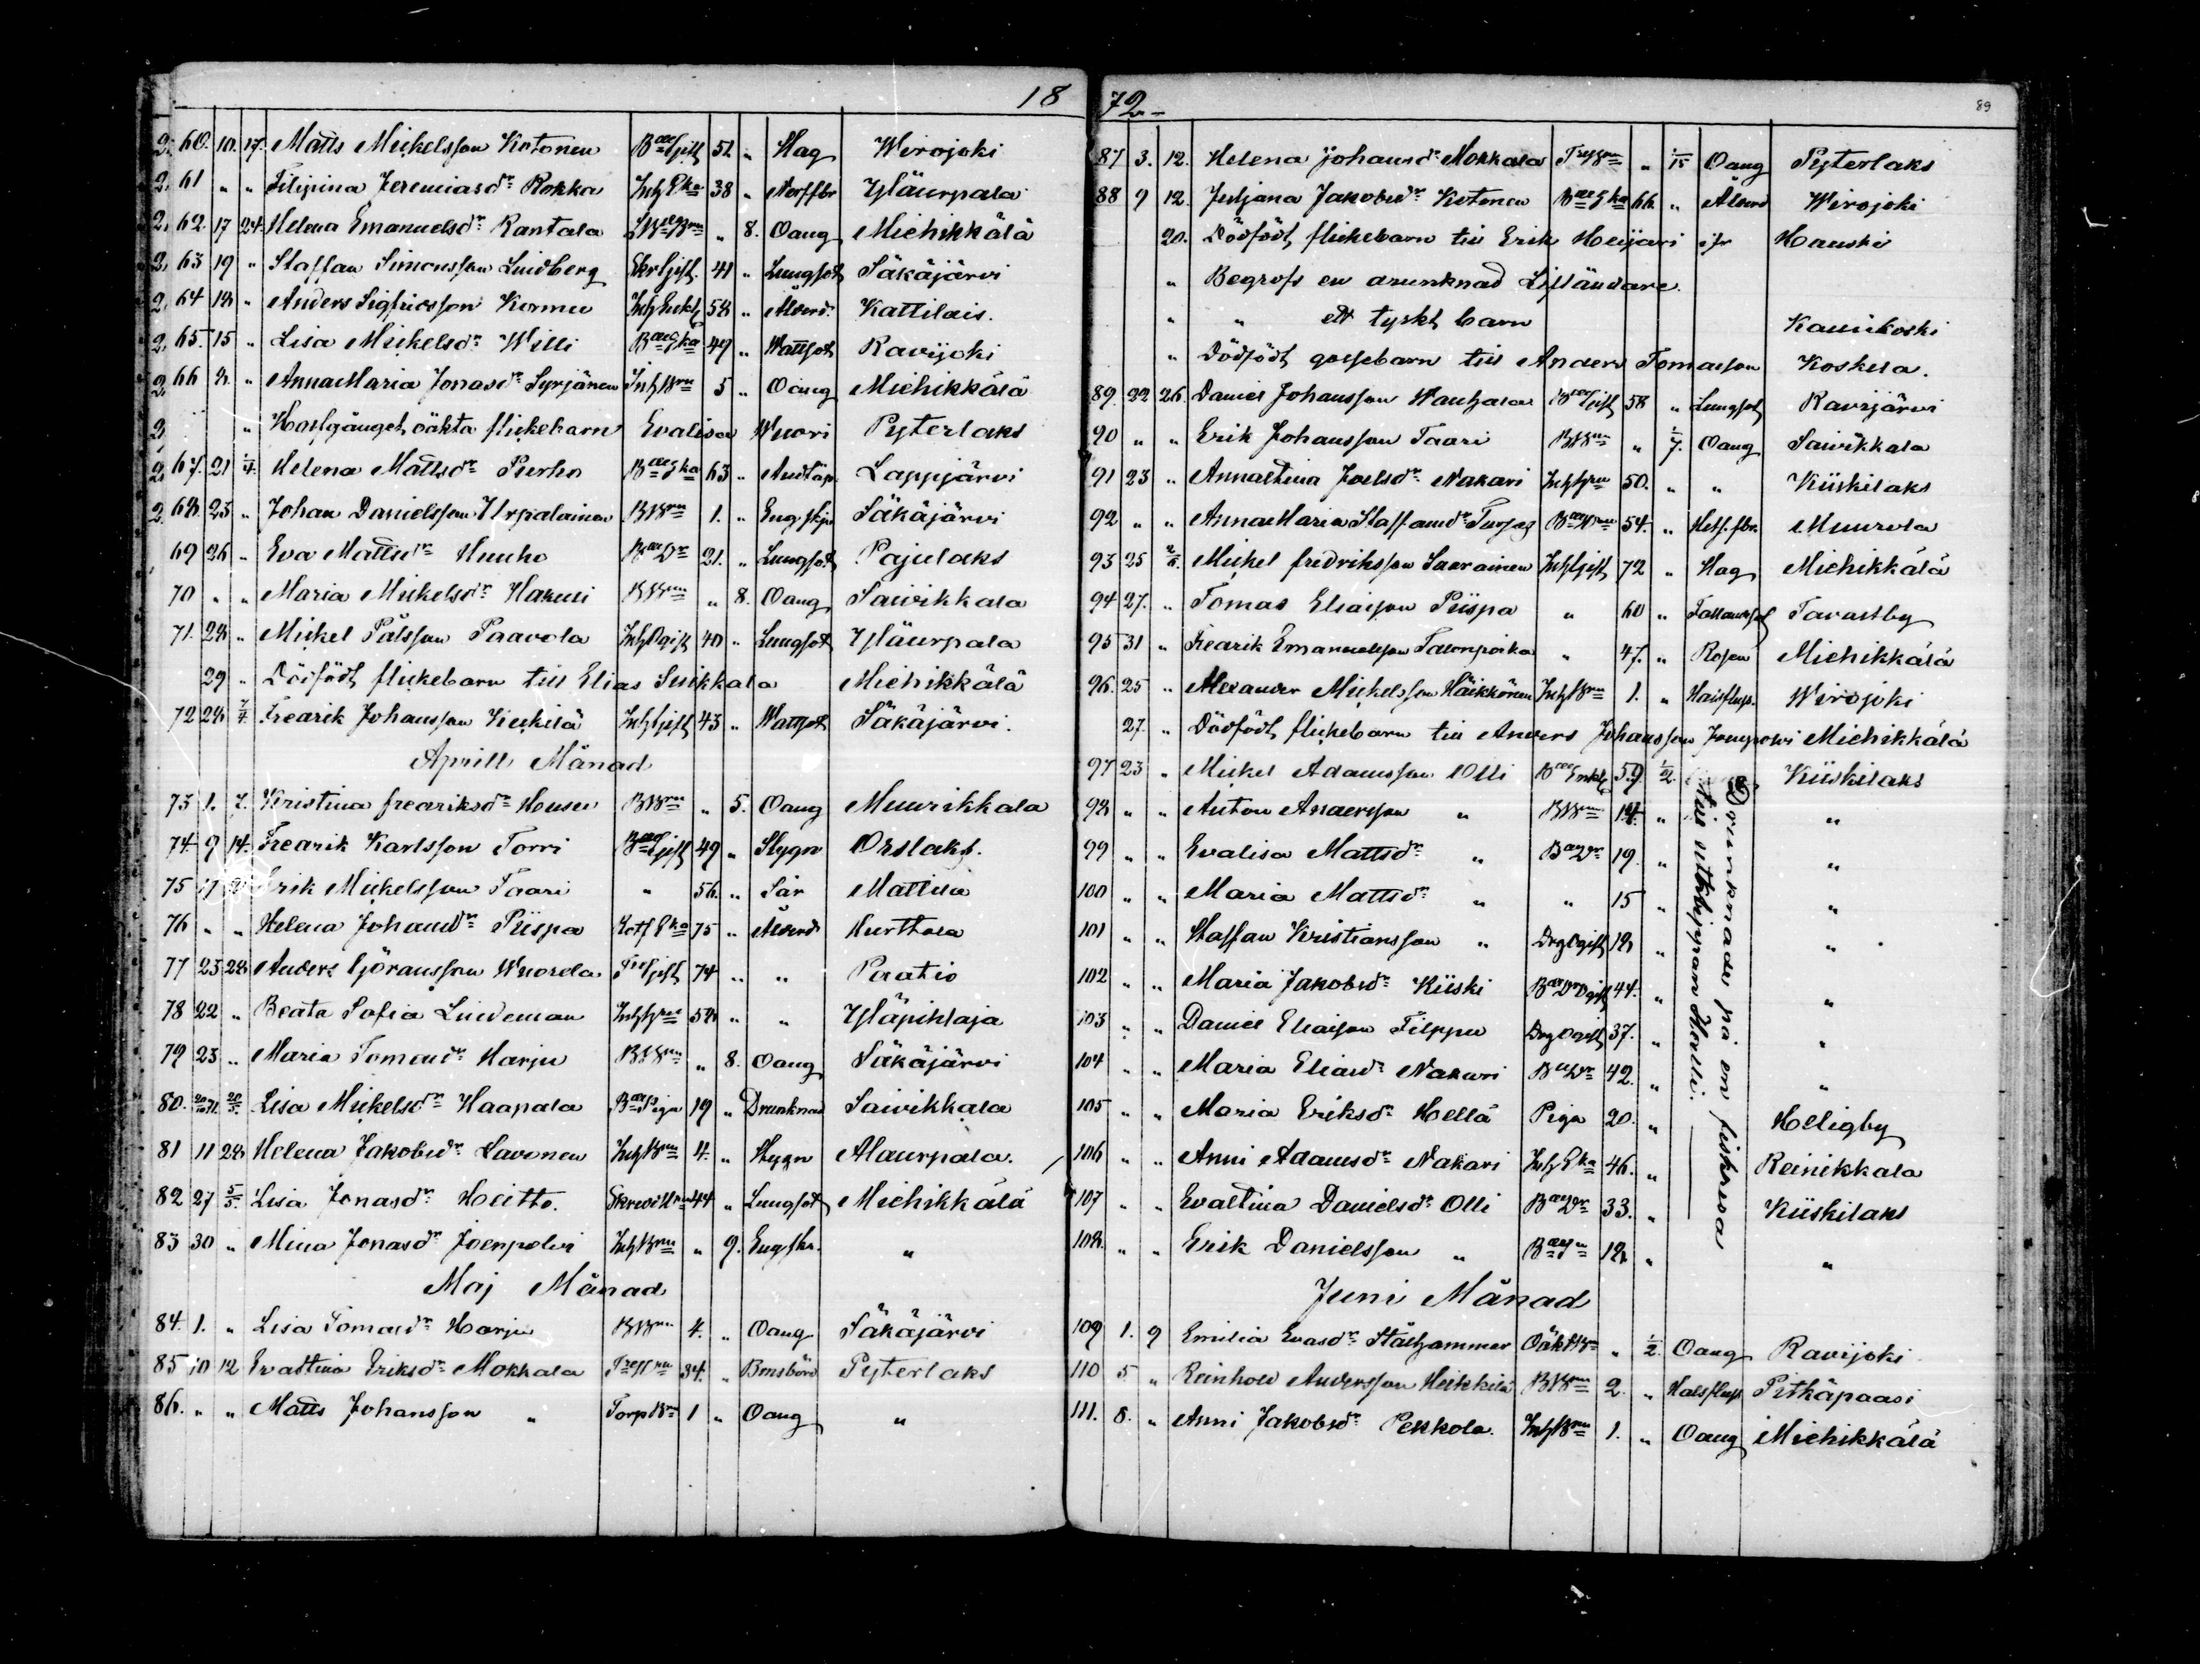 18
2. 60. 10. 17. Matts Mickelsson Kotonen 51 " Slag Wirojoki
2. 61 " " Filipina Jeremiasdr Rokka Inh Eka 38 " Nerffbr Yläurpala
2. 62. 17 24. Helena Emanuelsdr Rantala " 8. Oang Miehikkälä
2. 63 19 " Staffan Simonsson Lindberg 41 " Lungsot Säkäjärvi
2. 64 18 " Anders Sigfridsson Kormu Inh Enkl 58 " Ålderd. Kattilais.
2. 65. 15 " Lisa Mickelsdr Willi 49 " Wattsot Ravijoki
2. 66 8. " Anna Maria Jonasdr Syrjänen Inh Brn 5 " Oang Miehikkälä
2. " oäkta flickebarn Evalisa Wuori Pyterlaks
2. 67. 21 1/4. Helena Mattsdr Purho 63 " Andtäp. Lappjärvi
2. 68. 23 " Johan Danielsson Urpalainen BBrn 1. " Eng. skj. Säkäjärvi
69 26 " Eva Mattsdr Huuho 21. " Lungsot Pajulaks
70 " " Maria Mickelsdr Hakuli BBrn " 8. Oang Saivikkala
71. 28 " Mickel Pålsson Paavola Inh Ogift 40 " Lungsot Yläurpala
29 " Dödfödt flickebarn till Elias Suikkala Miehikkälä
72 28 7/4. Fredrik Johansson Inh Gift 43 " Wattsot Säkäjärvi.
Aprill Månad
73 1. 7. Kristina Fredriksdr Husu BBrn " 5. Oang Muurikkala
74. 9 14. Fredrik Karlsson Torri 49 " Stygn Orslaks.
75 17 21 Erik Mickelsson Taari " 56. " Sår Mattila
76 " " Helena Johansdr Piispa 75 " Ålderd Kurttola
77 23 28 Anders Göransson Wuorela 74 " " Paatio
78 22 " Beata Sofia Lindeman 58 " " Yläpihlaja
79 23 " Maria Tomasdr Harju BBrn " 8. Oang Säkäjärvi
80. 20/10 71. 20/5. Lisa Mickelsdr Haapala 19 " Drunknad Saivikkala
81 11 28 Helena Jakobsdr Lavonen Inh Brn 4. " Stygn Alaurpala.
82 27 5/5. Lisa Jonasdr Heitto. 44 " Lungsot Miehikkälä
83 30 " Miina Jonasdr Joenpolvi Inh Brn " 9. Eng. skr. "
Maj Månad
84. 1. " Lisa Tomasdr Harju BBrn 4. " Oang Säkäjärvi
85 10 12 Evastina Eriksdr Mokkala 34. " Barnsbörd Pyterlaks
86. " " Matts Johansson " Torp Brn 1 " Oang "
72
89
87 3. 12. Helena Johansdr Mokkala " 1/15 Oang Pyterlaks
88 9 12. Juljana Jakobsdr Kotonen 66. " Ålderd Wirojoki
20. Dödfödt flickebarn till Erik Heijari ifr Hanski
" Begrofs en drunknad Lifländare.
" " ett tyskt barn Kaunikoski
" Dödfödt gossebarn till Anders Tomasson Koskela.
89. 22 26. Daniel Johansson Wanhala 58 " Lungsot Ravijärvi
90 " " Erik Johansson Taari BBrn " 1/7. Oang Saivikkala
91 23 " Annastina Joelsdr Nakari 50. " " Kiiskilaks
92 " " Anna Maria Staffansdr 54. " Muurola
93 25 2/6. Mickel Fredriksson Saarainen Inh Gift 72 " Slag Miehikkälä
94 27. " Tomas Eliasson Piispa " 60 " Fallandsot Tavastby
95 31 " Fredrik Emanuelsson Talonpoika " 47. " Rosen Miehikkälä
96. 25 " Alexander Mickelsson Häikkönen Inh Brn 1. " Halsflus. Wirojoki
27. " Dödfödt flickebarn till Anders Johansson Joenpolvi Miehikkälä
97 23 " Mickel Adamsson Olli 59 1/2. Kiiskilaks
98 " " Anton Andersson " BBrn 14. " "
99 " " Evalisa Mattsdr " 19. " "
100 " " Maria Mattsdr " " 15 " "
101 " " Staffan Kristiansson " Drg Ogift 18 " "
102 " " Maria Jakobsdr Kiiski 44. " "
103 " " Daniel Eliasson Filppu Drg Ogift 37. " "
104 " " Maria Eliasdr Nakari 42. " "
105 " " Maria Eriksdr Hellä Piga 20. " Heligby
106 " " Anni Adamsdr Nakari Inh Eka 46. " Reinikkala
107 " " Evastina Danielsdr Olli 33. " Kiiskilaks
108. " " Erik Danielsson " 18 " "
Drunknade på en fiskresa
till utbyjgan Holli.
Juni Månad
109 1. 9 Emilia Evasdr Stålhammer Oäkt Brn " 1/2. Oang Ravijoki
110 5 " Reinhold Andersson Heikkilä BBrn 2. " Halsfluss Pitkäpaasi
111. 8. " Anni Jakobsdr Pekkola. Inh Brn 1. " Oang Miehikkälä